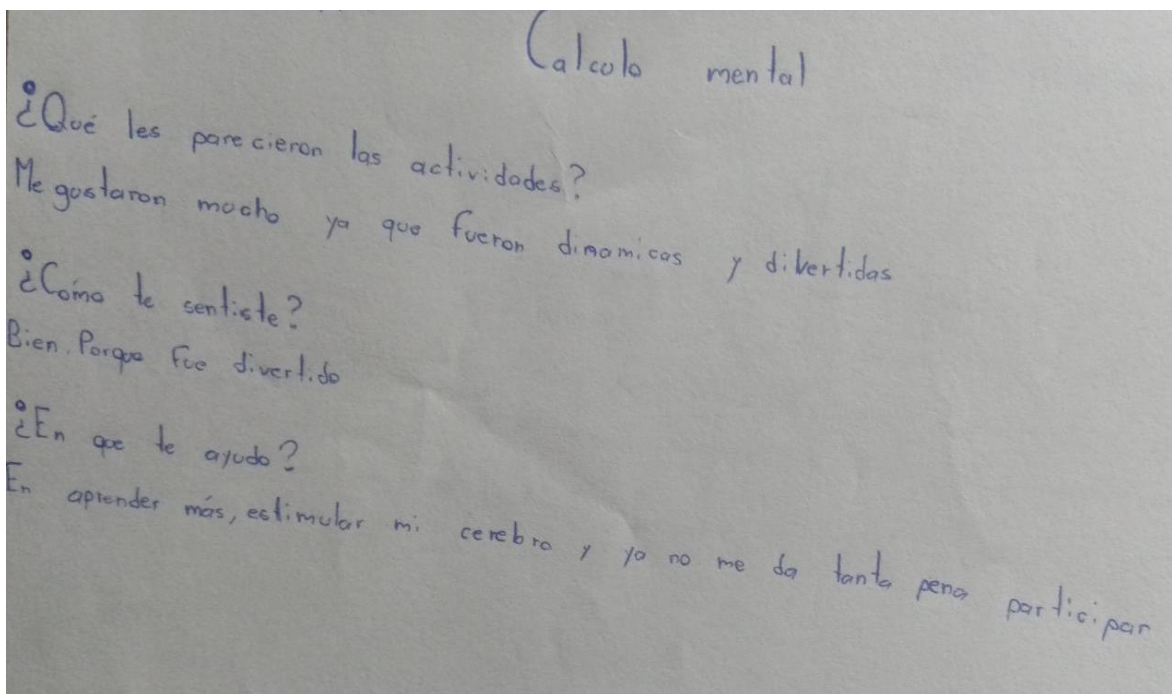 Calculo mental
¿Qué les parecieron las actividades?
Me gustaron mucho ya que fueron dinamicas y divertidas
¿Cómo te sentiste?
Bien. Porque fue divertido
¿En que te ayudo?
En aprender más, estimular mi cerebro y ya no me da tanta pena participar